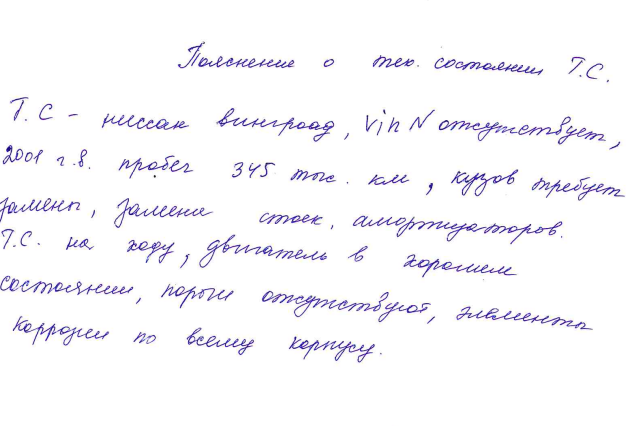 Пояснение о тех. состоянии Т.С.
Т.С - ниссан вингроад, Vin N отсутствует,
2001 г.в. пробег 345 тыс. км, кузов требует
замены, замена стоек, амортизаторов.
Т.С. на ходу, двигатель в хорошем
состоянии, пороги отсутствуют, элементы
коррозии по всему корпусу.